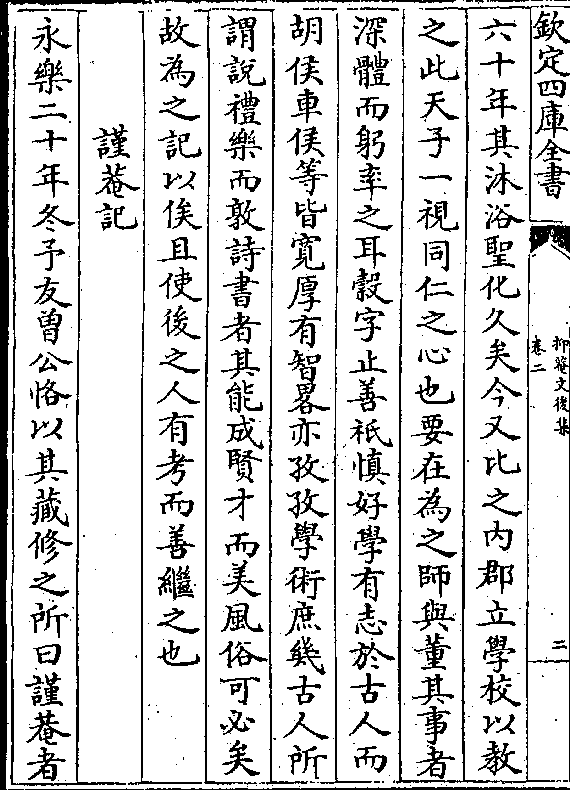 欽定四庫全書
抑菴文後集
卷二
二
六十年其沐浴聖化久矣今又比之内郡立學校以教
之此天子一視同仁之心也要在為之師與董其事者
深體而躬率之耳穀字止善祇慎好學有志於古人而
胡侯車侯等皆寛厚有智畧亦孜孜學術庶幾古人所
謂説禮樂而敦詩書者其能成賢才而美風俗可必矣
故為之記以俟且使後之人有考而善繼之也
謹菴記
永樂二十年冬予友曽公恪以其藏修之所曰謹菴者